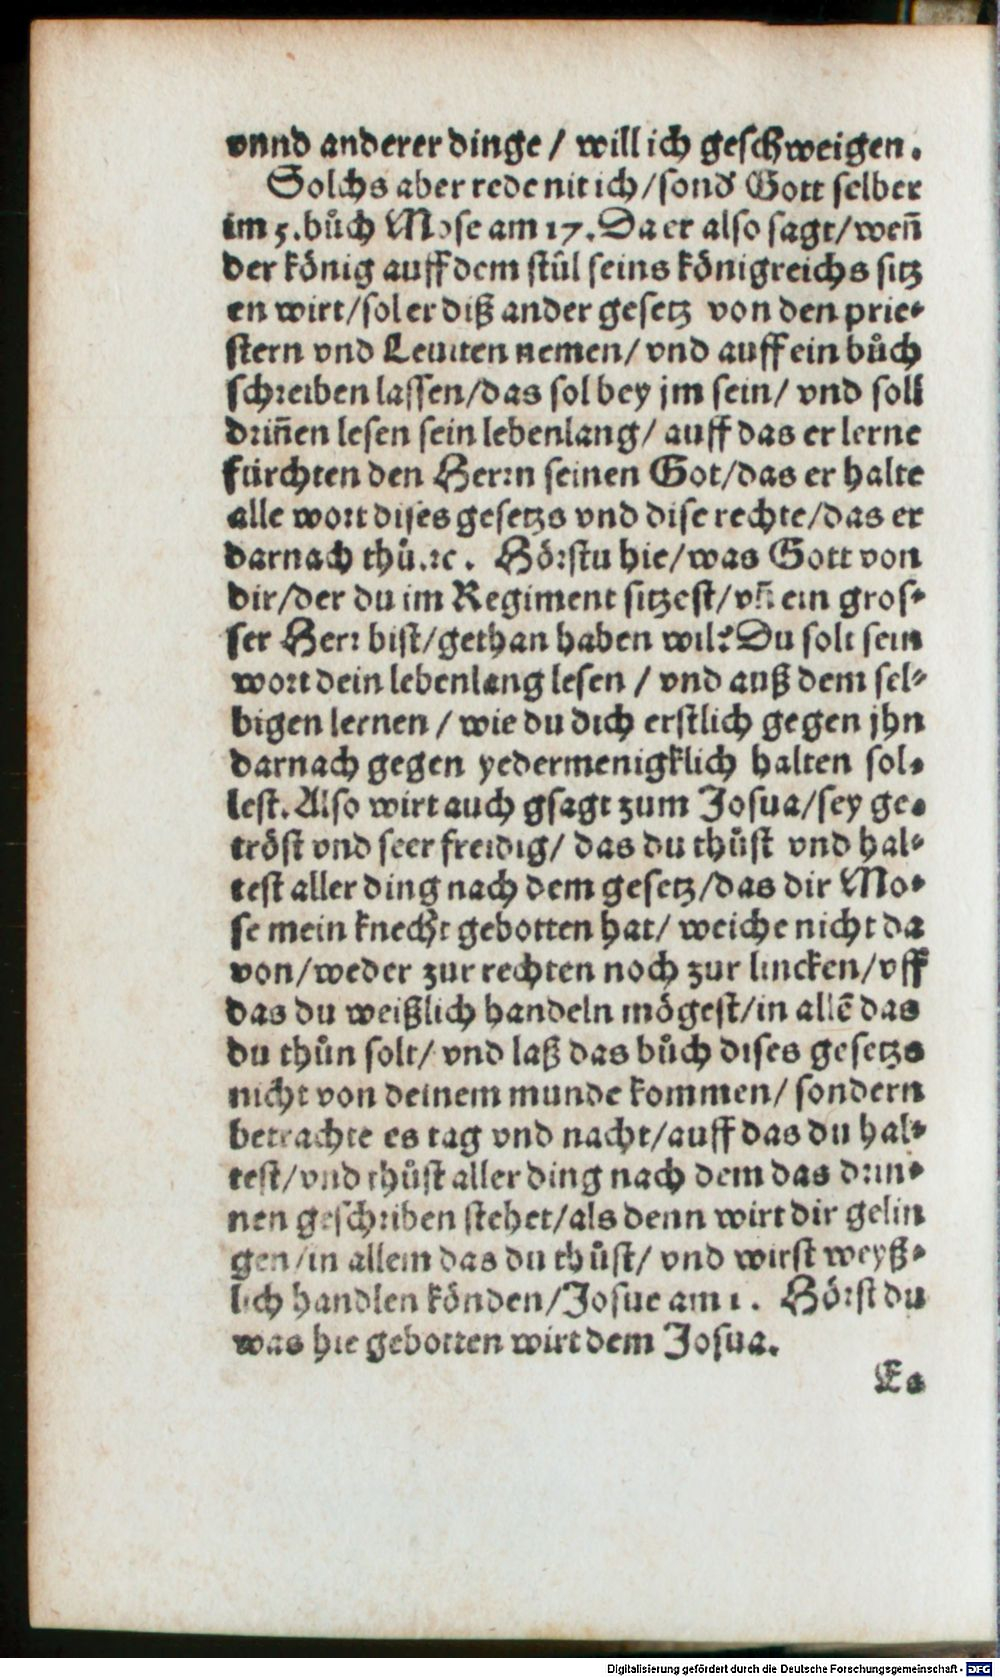 vnnd anderer dinge / will ich geschweigen.
Solchs aber rede nit ich / sond' Gott selber
im 5. bůch Mose am 17. Da er also sagt / weñ
der könig auff dem stůl seins königreichs sitz
en wirt / sol er diß ander gesetz von den prie-
stern vnd Leuiten nemen / vnd auff ein bůch
schreiben lassen / das sol bey jm sein / vnd soll
driñen lesen sein lebenlang / auff das er lerne
fürchten den Herrn seinen Got / das er halte
alle wort dises gesetzs vnd dise rechte / das er
darnach thů. ꝛc. Hörstu hie / was Gott von
dir / der du im Regiment sitzest / vñ ein gros-
ser Herr bist / gethan haben wil? Du solt sein
wort dein lebenlang lesen / vnd auß dem sel-
bigen lernen / wie du dich erstlich gegen jhn
darnach gegen yedermenigklich halten sol-
lest. Also wirt auch gsagt zum Josua / sey ge-
tröst vnd seer freidig / das du thůst vnd hal-
test aller ding nach dem gesetz / das dir Mo-
se mein knecht gebotten hat / weiche nicht da
von / weder zur rechten noch zur lincken / vff
das du weißlich handeln mögest / in allē das
du thůn solt / vnd laß das bůch dises gesetzs
nicht von deinem munde kommen / sondern
betrachte es tag vnd nacht / auff das du hal-
test / vnd thůst aller ding nach dem das drin-
nen geschriben stehet / als denn wirt dir gelin
gen / in allem das du thůst / vnd wirst weyß-
lich handlen könden / Josue am 1. Hörst du
was hie gebotten wirt dem Josua.
Es
Digitalisierung gefördert durch die Deutsche Forschungsgemeinschaft - DFG